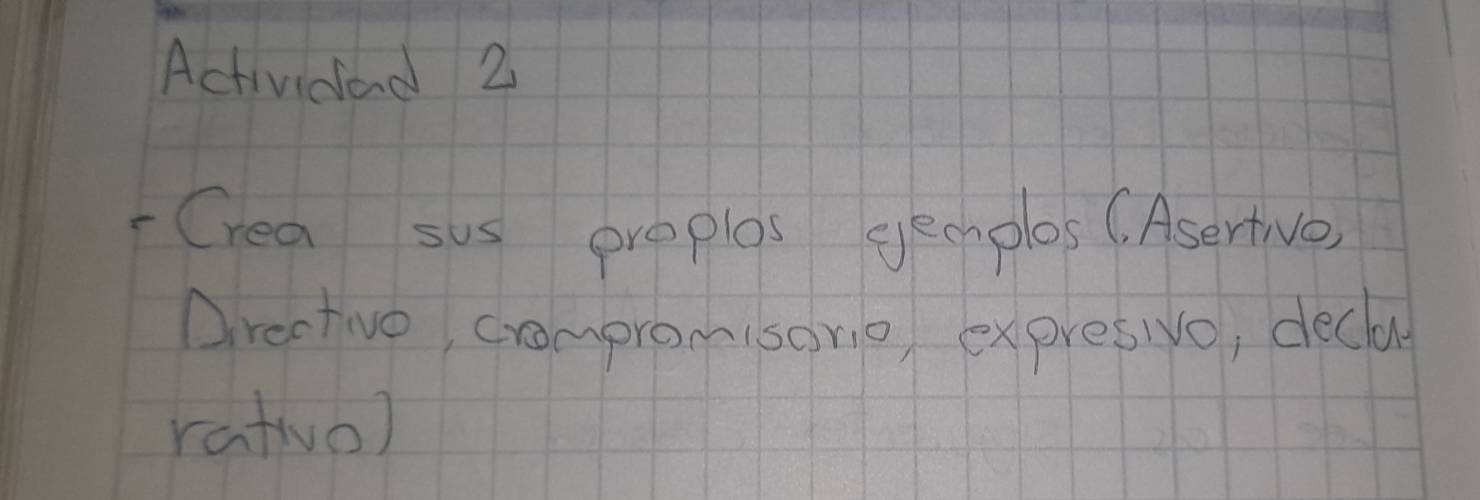 Actividad 2
- Crea sus propios ejemplos (Asertivo,
Directivo, crompromisorio, expresivo, decla
rativo)